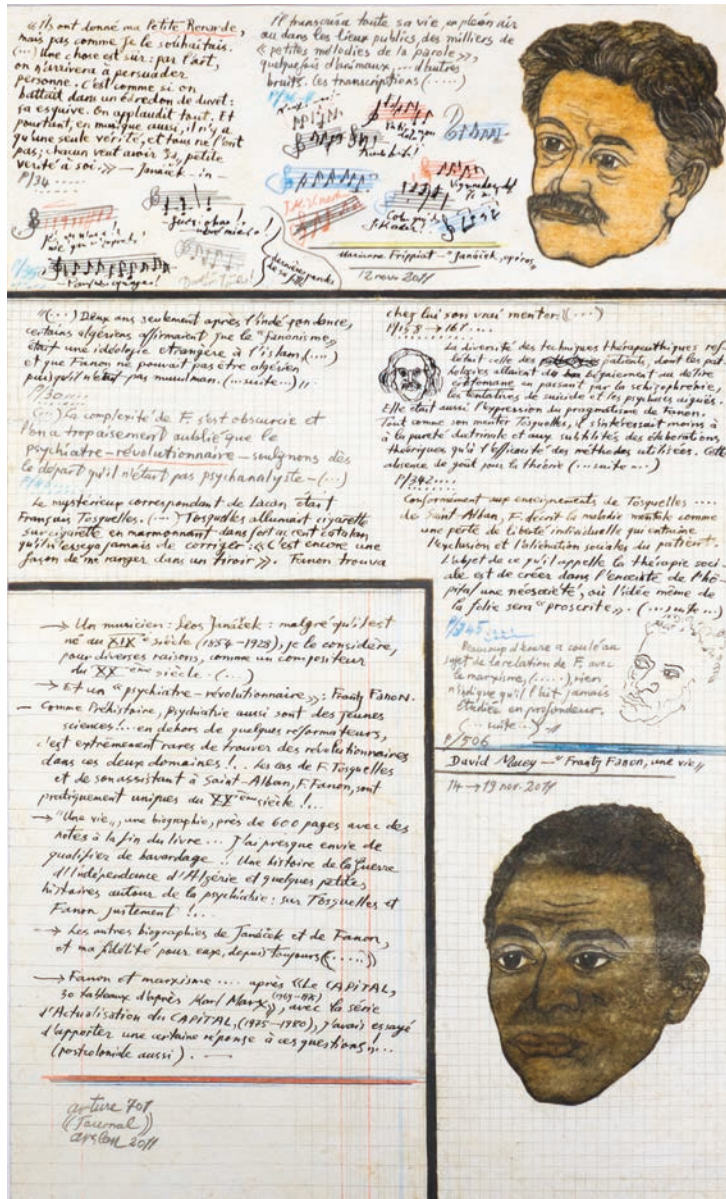 «Ils ont donné ma Petite Renarde,
mais pas comme je le souhaitais.
(...) Une chose est sûr: par l'art,
on n'arrivera à persuader
personne. C'est comme si on
battait dans un édredon de duvet:
ça esquive. On applaudit tout. Et
pourtant, en musique aussi, il n'y a
qu'une seule vérité, et tous ne l'ont
pas; chacun veut avoir sa petite
vérité à soi.» — Janáček — in
P/34 .....
Il transcrira toute sa vie, en plein air
ou dans les lieux publics, des milliers de
«petites mélodies de la parole»,
quelquefois d'animaux, ... d'autres
bruits. Ces transcriptions (.....)
dernières paroles
de sa fille
Marianne Frippiat — "Janáček, opéras"
12 nov. 2011
«(...) Deux ans seulement après l'indépendance,
certains algériens affirmaient que le "fanonisme"
était une idéologie étrangère à l'islam, (....)
et que Fanon ne pouvait pas être algérien
puisqu'il n'était pas musulman. (...suite...) //
P/30
(...) La complexité de F. s'est obscurcie et
l'on a trop aisement oublié que le
psychiatre-révolutionnaire — soulignons dès
le départ qu'il n'était pas psychanalyste — (...)
Le mystérieux correspondant de Lacan était
François Tosquelles. (...) Tosquelles allumait cigarette
sur cigarette en marmonnant dans fort accent catalan
qu'il n'essaya jamais de corriger: «C'est encore une
façon de me ranger dans un tiroir». Fanon trouva
chez lui son vrai mentor. (...)
P/158 → 161 ....
La diversité des techniques thérapeuthiques ref-
létait celle des patients, dont les pat-
hologies allaient du bégaiement au délire
érotomane en passant par la schizophrénie,
les tentatives de suicide et les psychoses aiguës.
Elle était aussi l'expression du pragmatisme de Fanon.
Tout comme son mentor Tosquelles, il s'intéressait moins à
à la pureté doctrinale et aux subtilités des élaborations
théoriques qu'à l'efficacité des méthodes utilisées. Cette
absence de goût pour la théorie (...suite...)
P/342 ....
Conformément aux enseignements de Tosquelles ....
de Saint Alban, F. décrit la maladie mentale comme
une perte de liberté individuelle qui entraine
l'exclusion et l'aliénation sociales du patient.
L'objet de ce qu'il appelle la thérapie soci-
ale est de créer dans l'enceinte de l'hô-
pital une néosociété, où l'idée même de
la folie sera "proscrite". (...suite...)
P/345
Beaucoup d'encre a coulé au
sujet de la relation de F. avec
le marxisme, (.....), rien
n'indique qu'il l'ait jamais
étudiée en profondeur.
(...suite...) //
P/506
David Macey — "Frantz Fanon, une vie"
14 → 19 nov. 2011
→ Un musicien: Léos Janáček: malgré qu'il est
né au XIXème siècle (1854-1928), je le considère,
pour diverses raisons, comme un compositeur
du XXème siècle. (...)
→ Et un "psychiatre-révolutionnaire": Frantz Fanon.
— Comme Préhistoire, psychiatrie aussi sont des jeunes
sciences!.. en dehors de quelques réformateurs,
c'est extrêmement rares de trouver des révolutionnaires
dans ces deux domaines!.. Les cas de F. Tosquelles
et de son assistant à Saint-Alban, F. Fanon, sont
pratiquement uniques du XXème siècle!...
→ "Une vie", une biographie, près de 600 pages avec des
notes à la fin du livre... J'ai presque envie de
qualifier de bavardage!.. Une histoire de la Guerre
d'Indépendance d'Algérie et quelques petites
histoires autour de la psychiatrie: sur Tosquelles et
Fanon justement!...
→ Les autres biographies de Janáček et de Fanon,
et ma fidélité pour eux, depuis toujours (.....)
→ Fanon et marxisme .... après «Le CAPITAL,
30 tableaux d'après Karl Marx», avec la série
d'Actualisation du CAPITAL, (1975-1980), j'avais essayé
d'apporter une certaine réponse à ces questions....
(postcoloniale aussi). —
arture 701
((Journal))
arslan 2011